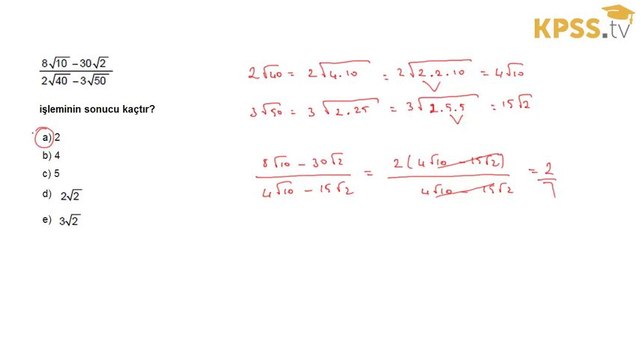 KPSS.tv
8√10 − 30√2
2√40 − 3√50
işleminin sonucu kaçtır?
a) 2
b) 4
c) 5
d) 2√2
e) 3√2
2√40 = 2√4.10 = 2√2.2.10 = 4√10
3√50 = 3√2.25 = 3√2.5.5 = 15√2
8√10 − 30√2 = 2(4√10 − 15√2) = 2
4√10 − 15√2 4√10 − 15√2